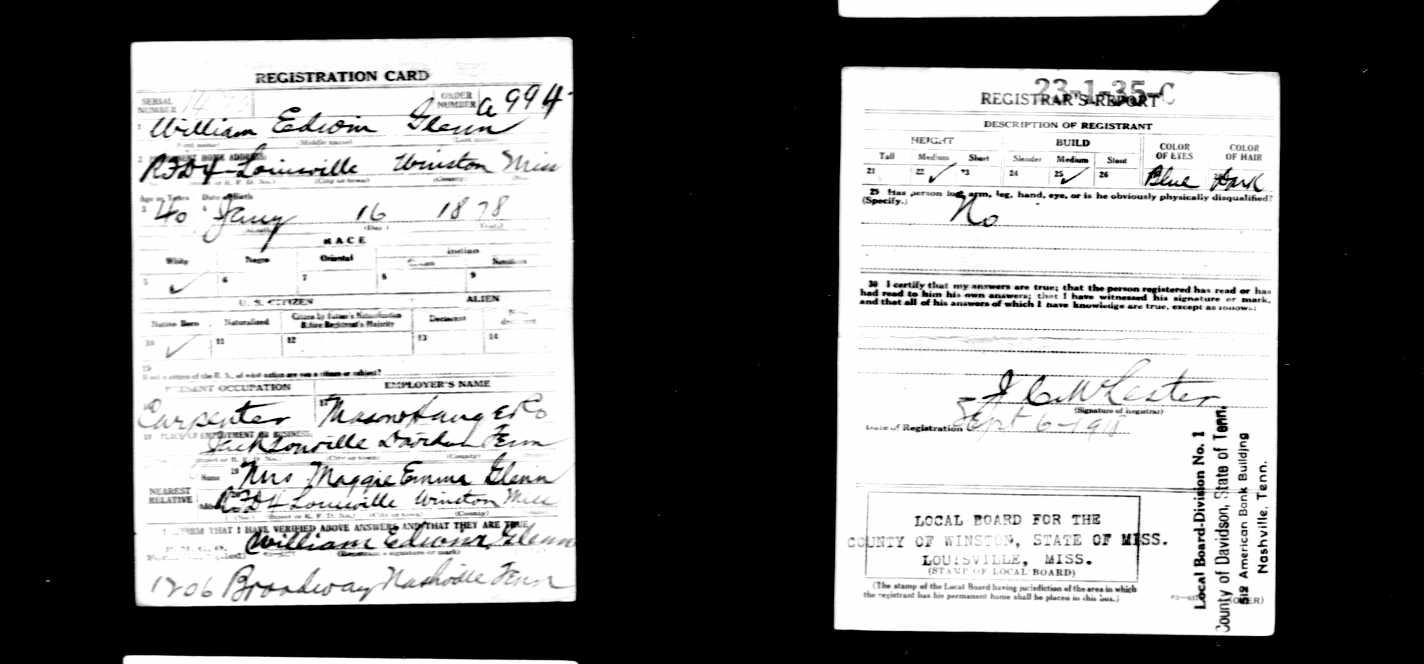 REGISTRATION CARD
SERIAL NUMBER
ORDER NUMBER a994
1 William Edwin Glenn
(First name) (Middle name) (Last name)
2 PERMANENT HOME ADDRESS:
RFD4 Louisville Winston Miss
(City or town) (County)
Age in Years Date of Birth
3 40 4 Jany 16 1878
(Month) (Day) (Year)
RACE
White Negro Oriental Indian
Citizen
5 ✓ 6 7 8 9
U. S. CITIZEN ALIEN
Native Born Naturalized Citizen by Father's Naturalization Before Registrant's Majority Declarant
10 ✓ 11 12 13 14
15
If not a citizen of the U. S., of what nation are you a citizen or subject?
PRESENT OCCUPATION EMPLOYER'S NAME
Carpenter 17 Mason Hang & Co
18 PLACE OF EMPLOYMENT OR BUSINESS:
Jacksonville Davidson Tenn
(City or town) (County)
Name 19 Mrs Maggie Emma Glenn
NEAREST RELATIVE
RFD4 Louisville Winston Miss
(City or town) (County)
I AFFIRM THAT I HAVE VERIFIED ABOVE ANSWERS AND THAT THEY ARE TRUE
William Edwin Glenn
(Registrant's signature or mark)
1206 Broadway Nashville Tenn
23-1-35-C
REGISTRAR'S REPORT
DESCRIPTION OF REGISTRANT
HEIGHT BUILD COLOR OF EYES COLOR OF HAIR
Tall Medium Short Slender Medium Stout
21 22 ✓ 23 24 25 ✓ 26 Blue Dark
29 Has person lost arm, leg, hand, eye, or is he obviously physically disqualified?
(Specify.) No
30 I certify that my answers are true; that the person registered has read or has
had read to him his own answers; that I have witnessed his signature or mark,
and that all of his answers of which I have knowledge are true, except as follows:
J C W Lester
(Signature of Registrar)
Date of Registration Sept 6-1918
LOCAL BOARD FOR THE
COUNTY OF WINSTON, STATE OF MISS.
LOUISVILLE, MISS.
(STAMP OF LOCAL BOARD)
(The stamp of the Local Board having jurisdiction of the area in which
the registrant has his permanent home shall be placed in this box.)
(OVER)
Local Board-Division No. 1
County of Davidson, State of Tenn.
512 American Bank Building
Nashville, Tenn.